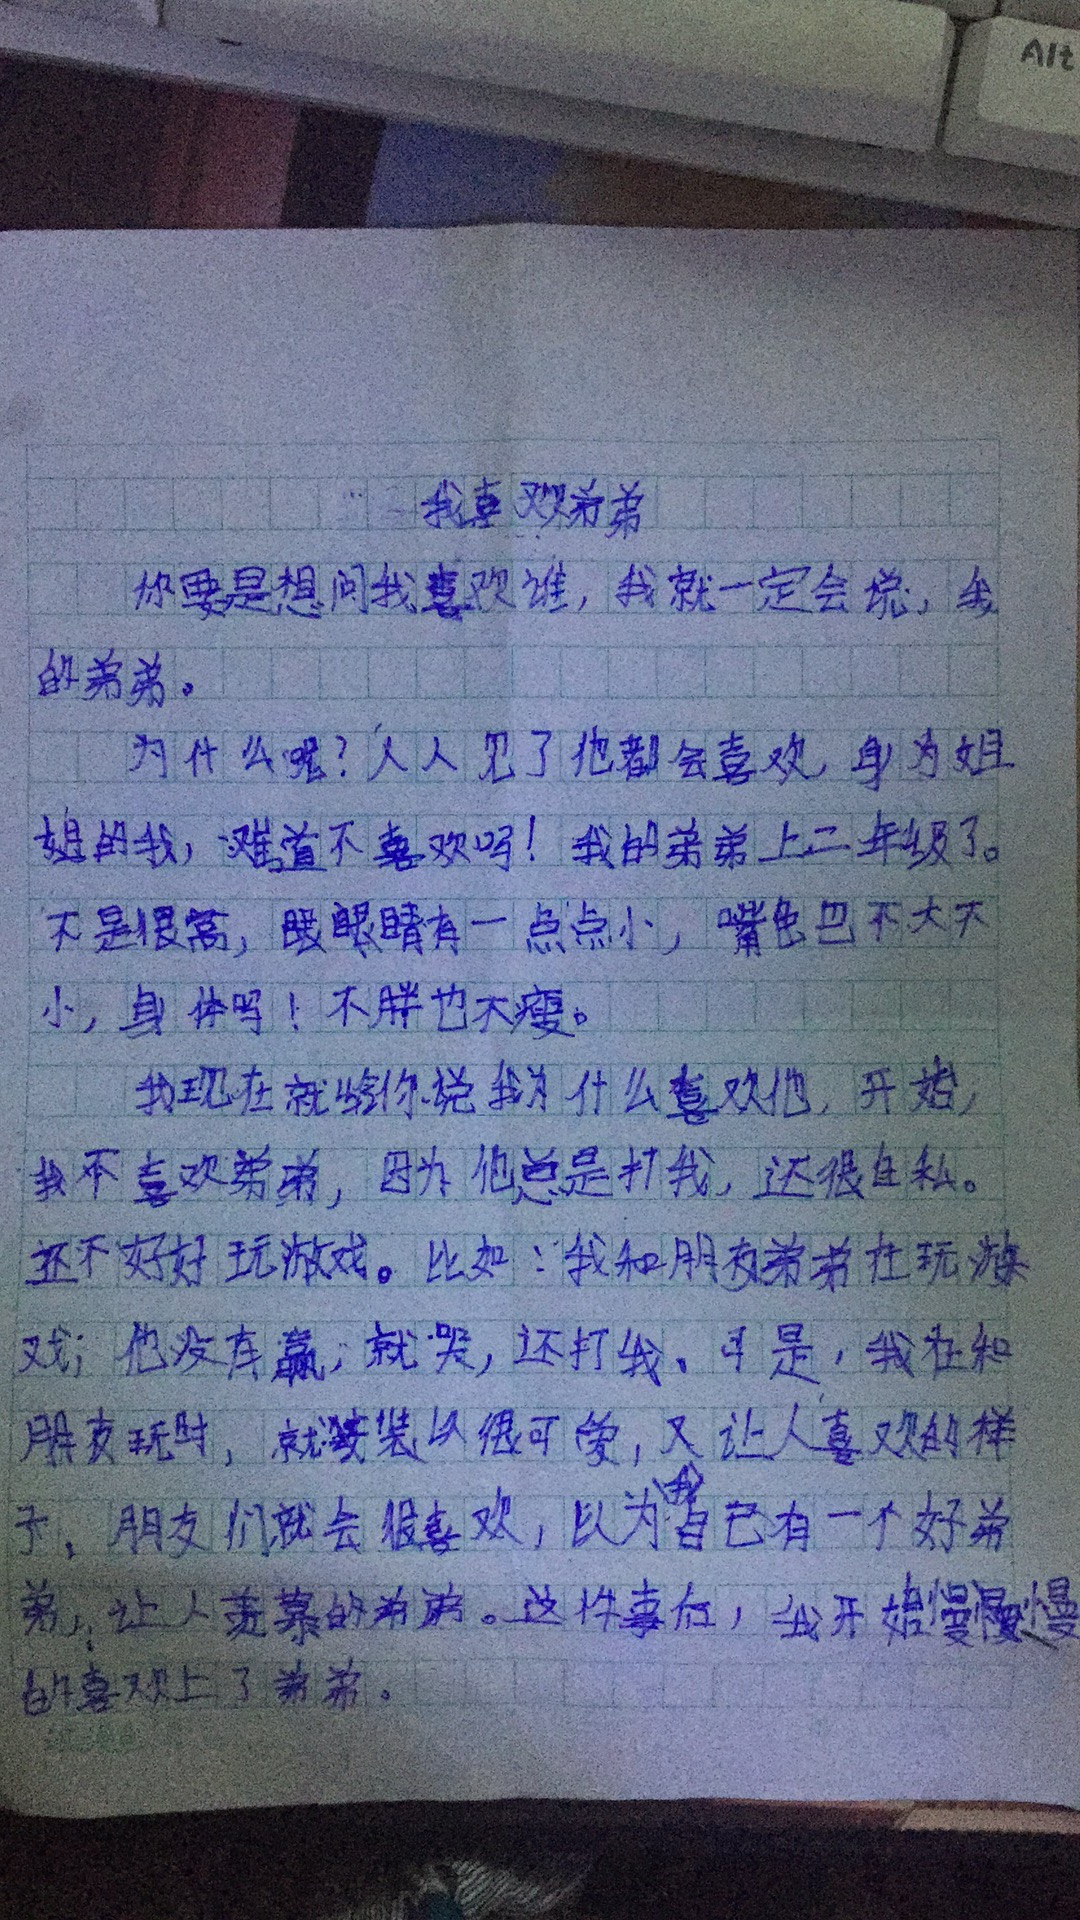 Alt
我喜欢弟弟
你要是想问我喜欢谁，我就一定会说，我
的弟弟。
为什么呢？人人见了他都会喜欢，身为姐
姐的我，难道不喜欢吗！我的弟弟上二年级了。
不是很高，眼睛有一点点小，嘴巴不大不
小，身体吗！不胖也不瘦。
我现在就给你说我为什么喜欢他，开始，
我不喜欢弟弟，因为他总是打我，还很自私。
还不好好玩游戏。比如：我和朋友弟弟在玩游
戏；他没有赢，就哭，还打我。于是，我在和
朋友玩时，就装以很可爱，又让人喜欢的样
子，朋友们就会很喜欢，以为我自己有一个好弟
弟，让人羡慕的弟弟。这件事后，我开始慢慢
的喜欢上了弟弟。